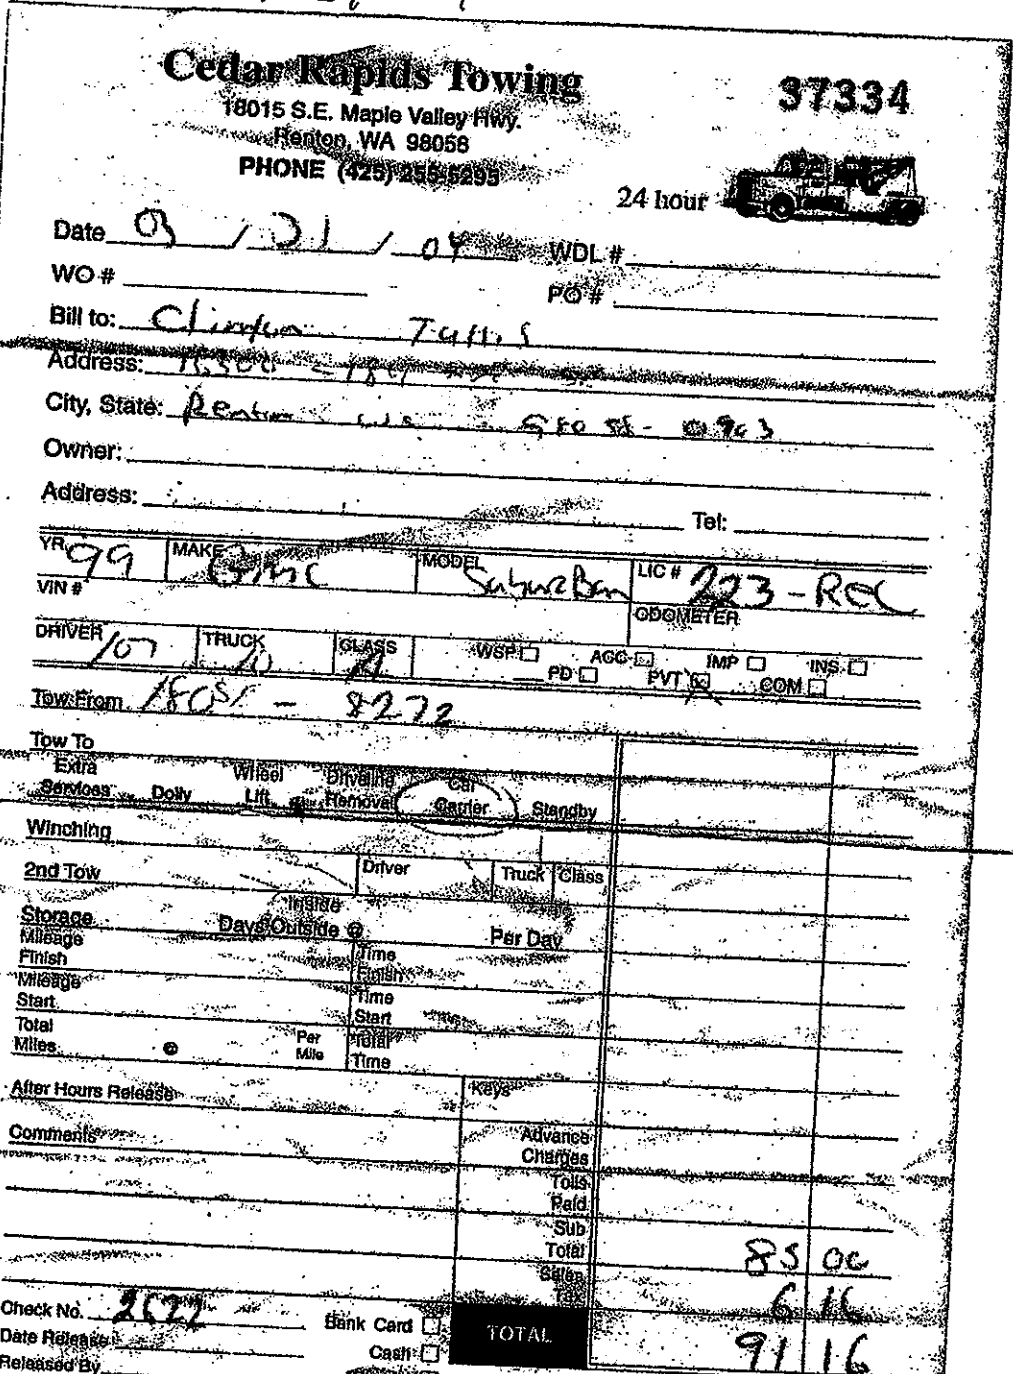 Cedar Rapids Towing
37334
18015 S.E. Maple Valley Hwy.
Renton, WA 98058
PHONE (425) 255-5295
24 hour
Date / 21 / 04 WDL #
WO # PO #
Bill to:
Address:
City, State: Renton
Owner:
Address: Tel:
YR 99 MAKE GMC MODEL SuburBan LIC # 223-REC
VIN # ODOMETER
DRIVER 107 TRUCK 10 CLASS A WSP ACC IMP INS
PD PVT COM
Tow From 180St - 8272
Tow To
Extra Services Dolly Wheel Lift Driveline Removal Car Carrier Standby
Winching
2nd Tow Driver Truck Class
Storage Days Inside Outside @ Per Day
Mileage Finish Time Finish
Mileage Start Time Start
Total Miles @ Per Mile Total Time
After Hours Release Keys
Comments Advance Charges
Tolls Paid
Sub Total 85 00
Sales Tax 6 16
Check No. 2622 Bank Card TOTAL 91 16
Date Release Cash
Released By